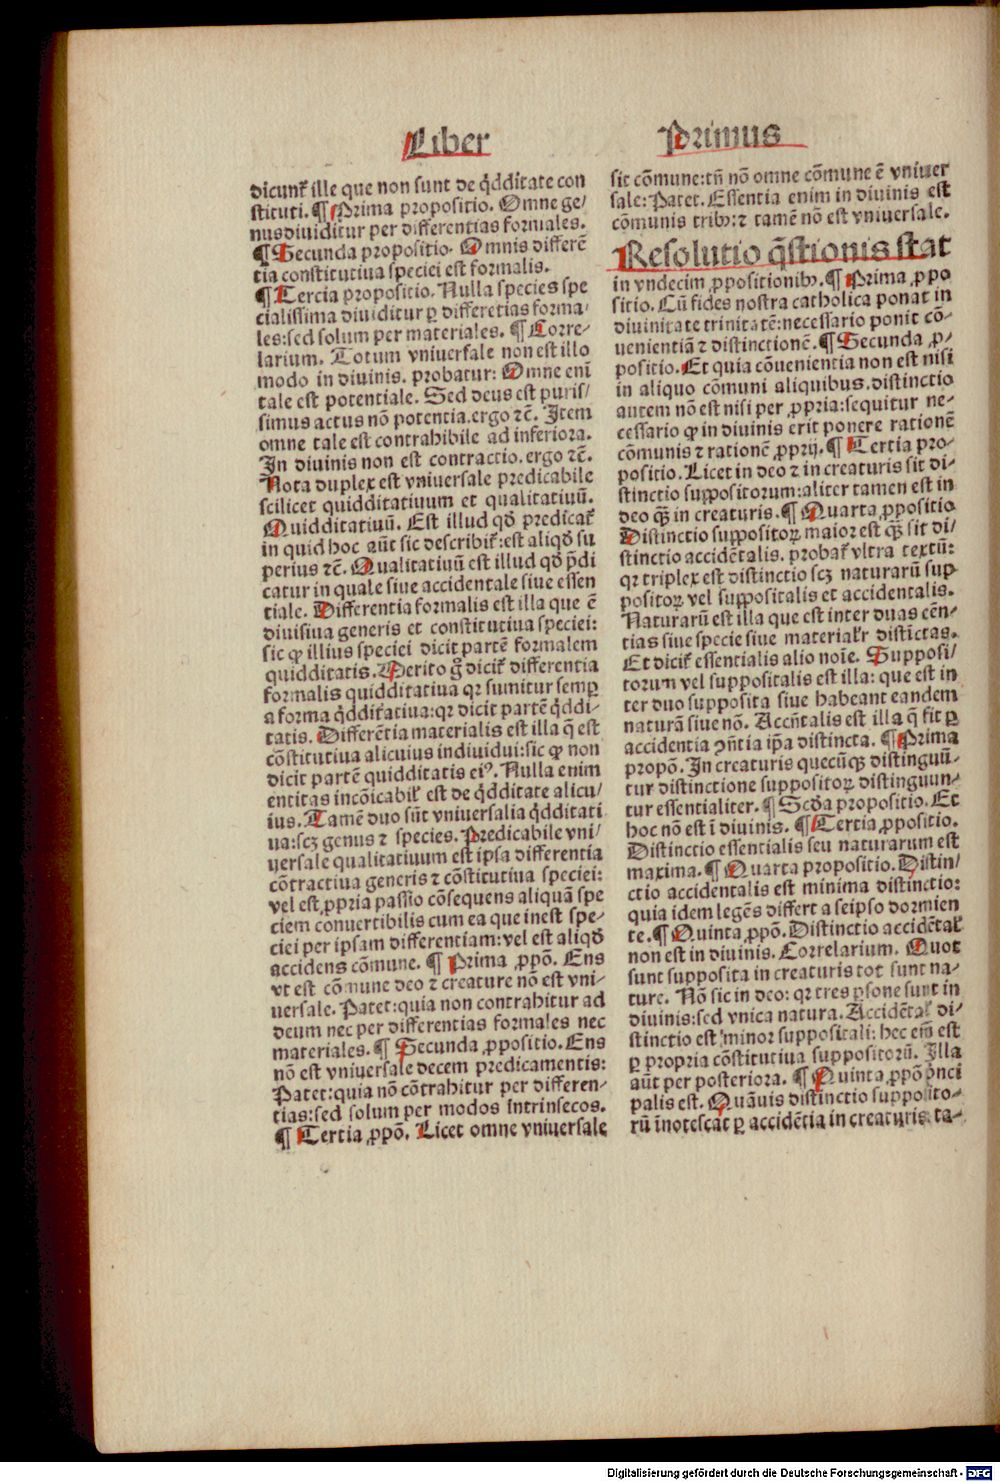 Liber
Primus
dicunt᷑ ille que non sunt de q̃dditate con
stituti. ¶ Prima propositio. Omne ge/
nus diuiditur per differentias formales.
¶ Secunda propositio. Omnis differẽ
tia constitutiua speciei est formalis.
¶ Tercia propositio. Nulla species spe
cialissima diuiditur ꝑ differẽtias forma/
les: sed solum per materiales. ¶ Corre-
larium. Totum vniuersale non est illo
modo in diuinis. probatur: Omne eni
tale est potentiale. Sed deus est puris/
simus actus nõ potentia. ergo ⁊c̃. Item
omne tale est contrahibile ad inferiora.
In diuinis non est contractio. ergo ⁊c̃.
Nota duplex est vniuersale predicabile
scilicet quidditatiuum et qualitatiuũ.
Quidditatiuũ. Est illud qð predicat᷑
in quid hoc aũt sic describit᷑: est aliqð su
perius ⁊c̃. Qualitatiuũ est illud qð p̃di
catur in quale siue accidentale siue essen
tiale. Differentia formalis est illa que ẽ
diuisiua generis et constitutiua speciei:
sic ꝙ illius speciei dicit partẽ formalem
quidditatis. Merito g̃ dicit᷑ differentia
formalis quidditatiua qꝛ sumitur semꝑ
a forma q̃dditatiua: qꝛ dicit partẽ q̃ddi-
tatis. Differẽtia materialis est illa q̃ est
cõstitutiua alicuius indiuidui: sic ꝙ non
dicit partẽ quidditatis eiꝰ. Nulla enim
entitas incõicabil᷑ est de q̃dditate alicu/
ius. Tamẽ duo sũt vniuersalia q̃dditati
ua: scꝫ genus ⁊ species. Predicabile vni/
uersale qualitatiuum est ipsa differentia
cõtractiua generis ⁊ cõstitutiua speciei:
vel est ꝓpria passio cõsequens aliquã spe
ciem conuertibilis cum ea que inest spe-
ciei per ipsam differentiam: vel est aliqð
accidens cõmune. ¶ Prima ꝓpõ. Ens
vt est cõmune deo ⁊ creature nõ est vni-
uersale. Patet: quia non contrahitur ad
deum nec per differentias formales nec
materiales. ¶ Secunda ꝓpositio. Ens
nõ est vniuersale decem predicamentis:
Patet: quia nõ cõtrahitur per differen-
tias: sed solum per modos intrinsecos.
¶ Tertia ꝓpõ. Licet omne vniuersale
sit cõmune: tñ nõ omne cõmune ẽ vniuer
sale: Patet. Essentia enim in diuinis est
cõmunis tribꝰ: ⁊ tamẽ nõ est vniuersale.
Resolutio q̃stionis stat
in vndecim ꝓpositionibꝰ. ¶ Prima ꝓpo
sitio. Cũ fides nostra catholica ponat in
diuinitate trinitatẽ: necessario ponit cõ-
uenientiã ⁊ distinctionẽ. ¶ Secunda ꝓ-
positio. Et quia cõuenientia non est nisi
in aliquo cõmuni aliquibus. distinctio
autem nõ est nisi per ꝓpria: sequitur ne-
cessario ꝙ in diuinis erit ponere rationẽ
cõmunis ⁊ rationẽ ꝓprij. ¶ Tertia pro-
positio. Licet in deo ⁊ in creaturis sit di-
stinctio suppositorum: aliter tamen est in
deo qꝫ̃ in creaturis. ¶ Quarta ꝓpositio
Distinctio suppositoꝝ maior est qꝫ̃ sit di/
stinctio accidẽtalis. probat᷑ vltra textũ:
qꝛ triplex est distinctio scꝫ naturarũ sup-
positoꝝ vel suppositalis et accidentalis.
Naturarũ est illa que est inter duas eẽn-
tias siue specie siue material᷑r distĩctas.
Et dicit᷑ essentialis alio noĩe. Supposi/
torum vel suppositalis est illa: que est in
ter duo supposita siue habeant eandem
naturã siue nõ. Accñtalis est illa q̃ fit ꝑ
accidentia ꝯñtia ip̃a distincta. ¶ Prima
propõ. In creaturis quecũqꝫ distinguũ-
tur distinctione suppositoꝝ distinguun-
tur essentialiter. ¶ Scða propositio. Et
hoc nõ est ĩ diuinis. ¶ Tertia ꝓpositio.
Distinctio essentialis seu naturarum est
maxima. ¶ Quarta propositio. Distin/
ctio accidentalis est minima distinctio:
quia idem legẽs differt a seipso dormien
te. ¶ Quinta ꝓpõ. Distinctio accidẽtal᷑
non est in diuinis. Correlarium. Quot
sunt supposita in creaturis tot sunt na-
ture. Nõ sic in deo: qꝛ tres ꝑsone sunt in
diuinis: sed vnica natura. Accidẽtal᷑ di-
stinctio est minor suppositali: hec eñ est
ꝑ propria cõstitutiua suppositorũ. Illa
aũt per posteriora. ¶ Quinta ꝓpõ p̃nci
palis est. Quãuis distinctio supposito-
rũ inotescat ꝑ accidẽtia in creaturis ta-
Digitalisierung gefördert durch die Deutsche Forschungsgemeinschaft - DFG